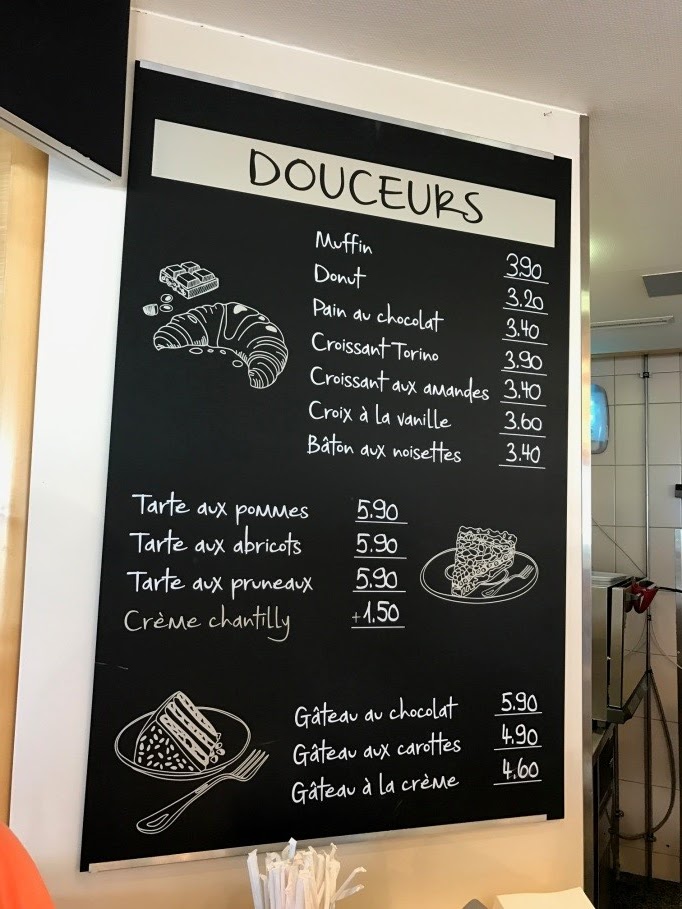 DOUCEURS
Muffin 3.90
Donut 3.20
Pain au chocolat 3.40
Croissant Torino 3.90
Croissant aux amandes 3.40
Croix à la vanille 3.60
Bâton aux noisettes 3.40
Tarte aux pommes 5.90
Tarte aux abricots 5.90
Tarte aux pruneaux 5.90
Crème chantilly +1.50
Gâteau au chocolat 5.90
Gâteau aux carottes 4.90
Gâteau à la crème 4.60